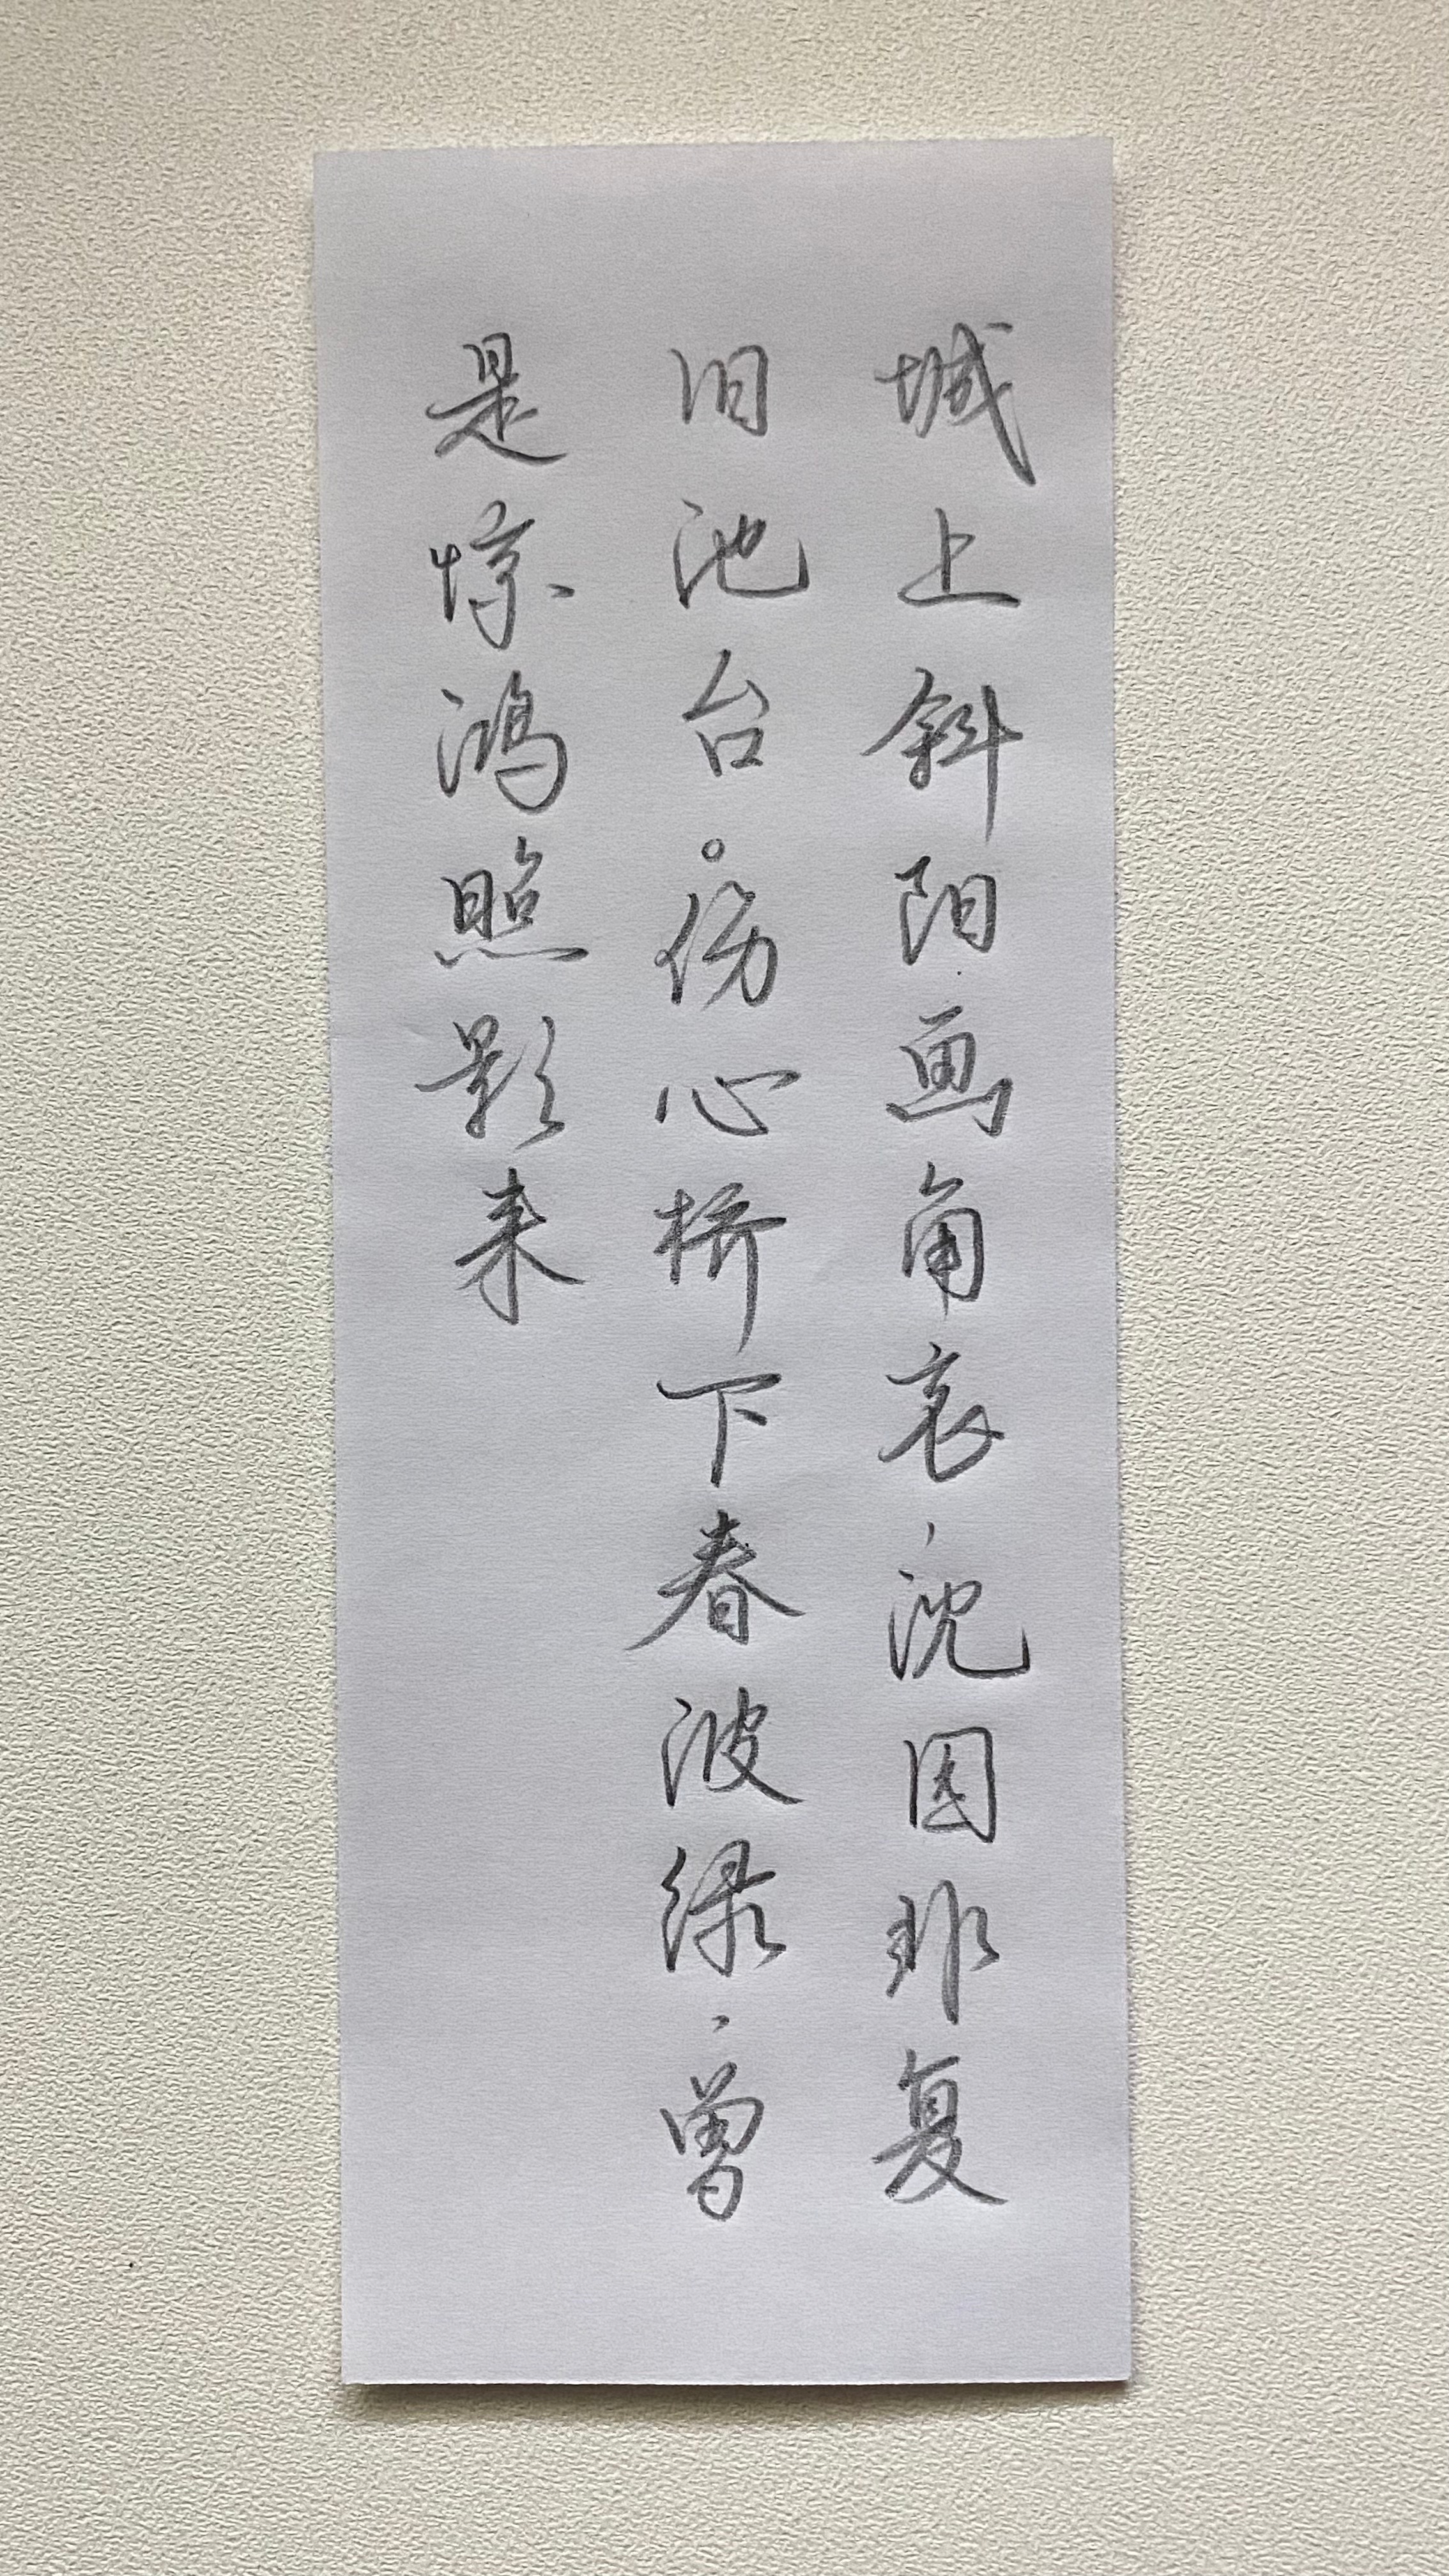 城上斜阳画角哀，沈园非复
旧池台。伤心桥下春波绿，曾
是惊鸿照影来